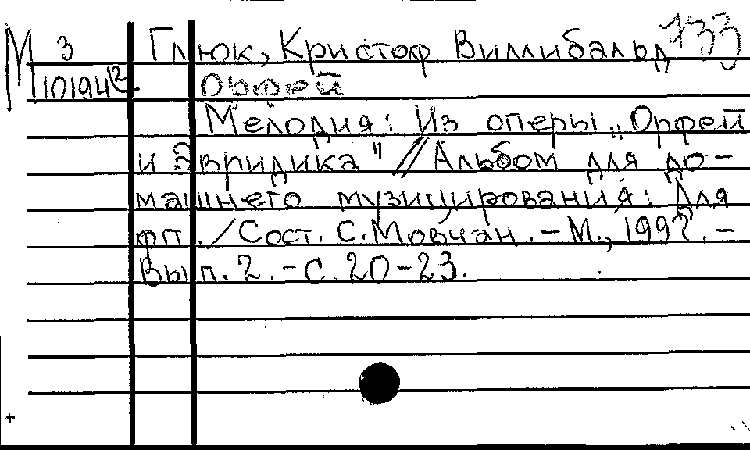 М 3 Глюк, Кристоф Виллибальд 733
10194² Орфей
Мелодия: Из оперы „Орфей
и Эвридика" // Альбом для до-
машнего музицирования: Для
фп. / Сост. С. Мовчан. - М., 1992. -
Вып. 2. - С. 20-23.